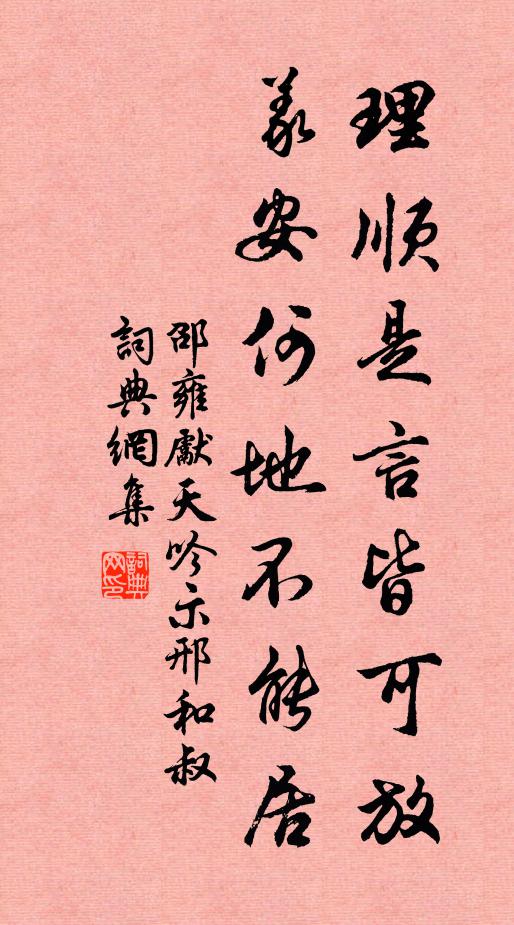 理順是言皆可放
義安何地不能居
邵雍獻天吟示邢和叔
詞典網集
詞典網印